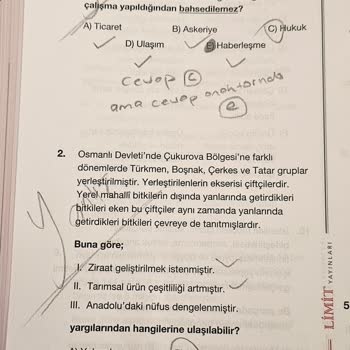 çalışma yapıldığından bahsedilemez?
A) Ticaret B) Askeriye C) Hukuk
D) Ulaşım E) Haberleşme
cevap C
ama cevap anahtarında
e
2. Osmanlı Devleti'nde Çukurova Bölgesi'ne farklı
dönemlerde Türkmen, Boşnak, Çerkes ve Tatar gruplar
yerleştirilmiştir. Yerleştirilenlerin ekserisi çiftçilerdir.
Yerel mahallî bitkilerin dışında yanlarında getirdikleri
bitkileri eken bu çiftçiler aynı zamanda yanlarında
getirdikleri bitkileri çevreye de tanıtmışlardır.
Buna göre;
I. Ziraat geliştirilmek istenmiştir.
II. Tarımsal ürün çeşitliliği artmıştır.
III. Anadolu'daki nüfus dengelenmiştir.
yargılarından hangilerine ulaşılabilir?
LİMİT YAYINLARI
5